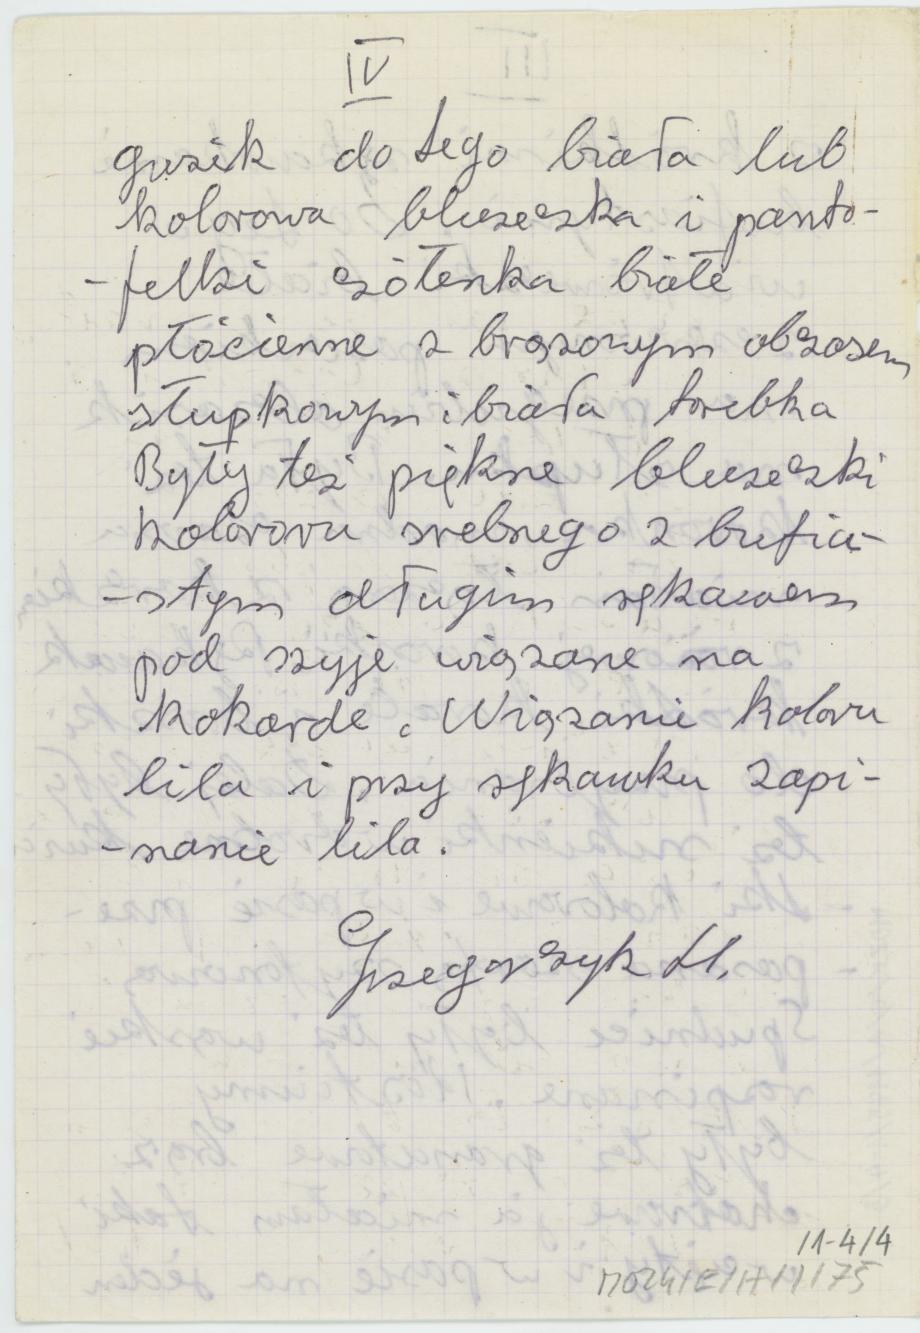 IV
guzik do tego biała lub
kolorowa bluzeczka i panto-
-felki czółenka białe
płócienne z brązowym obcasem
słupkowym i biała torebka
Były też piękne bluzeczki
kolororu srebnego z bufia-
-stym długim rękawem
pod szyje wiązane na
kokarde. Wiązanie koloru
lila i przy rękawku zapi-
-nanie lila.
Grzegorczyk H.
11-4/4